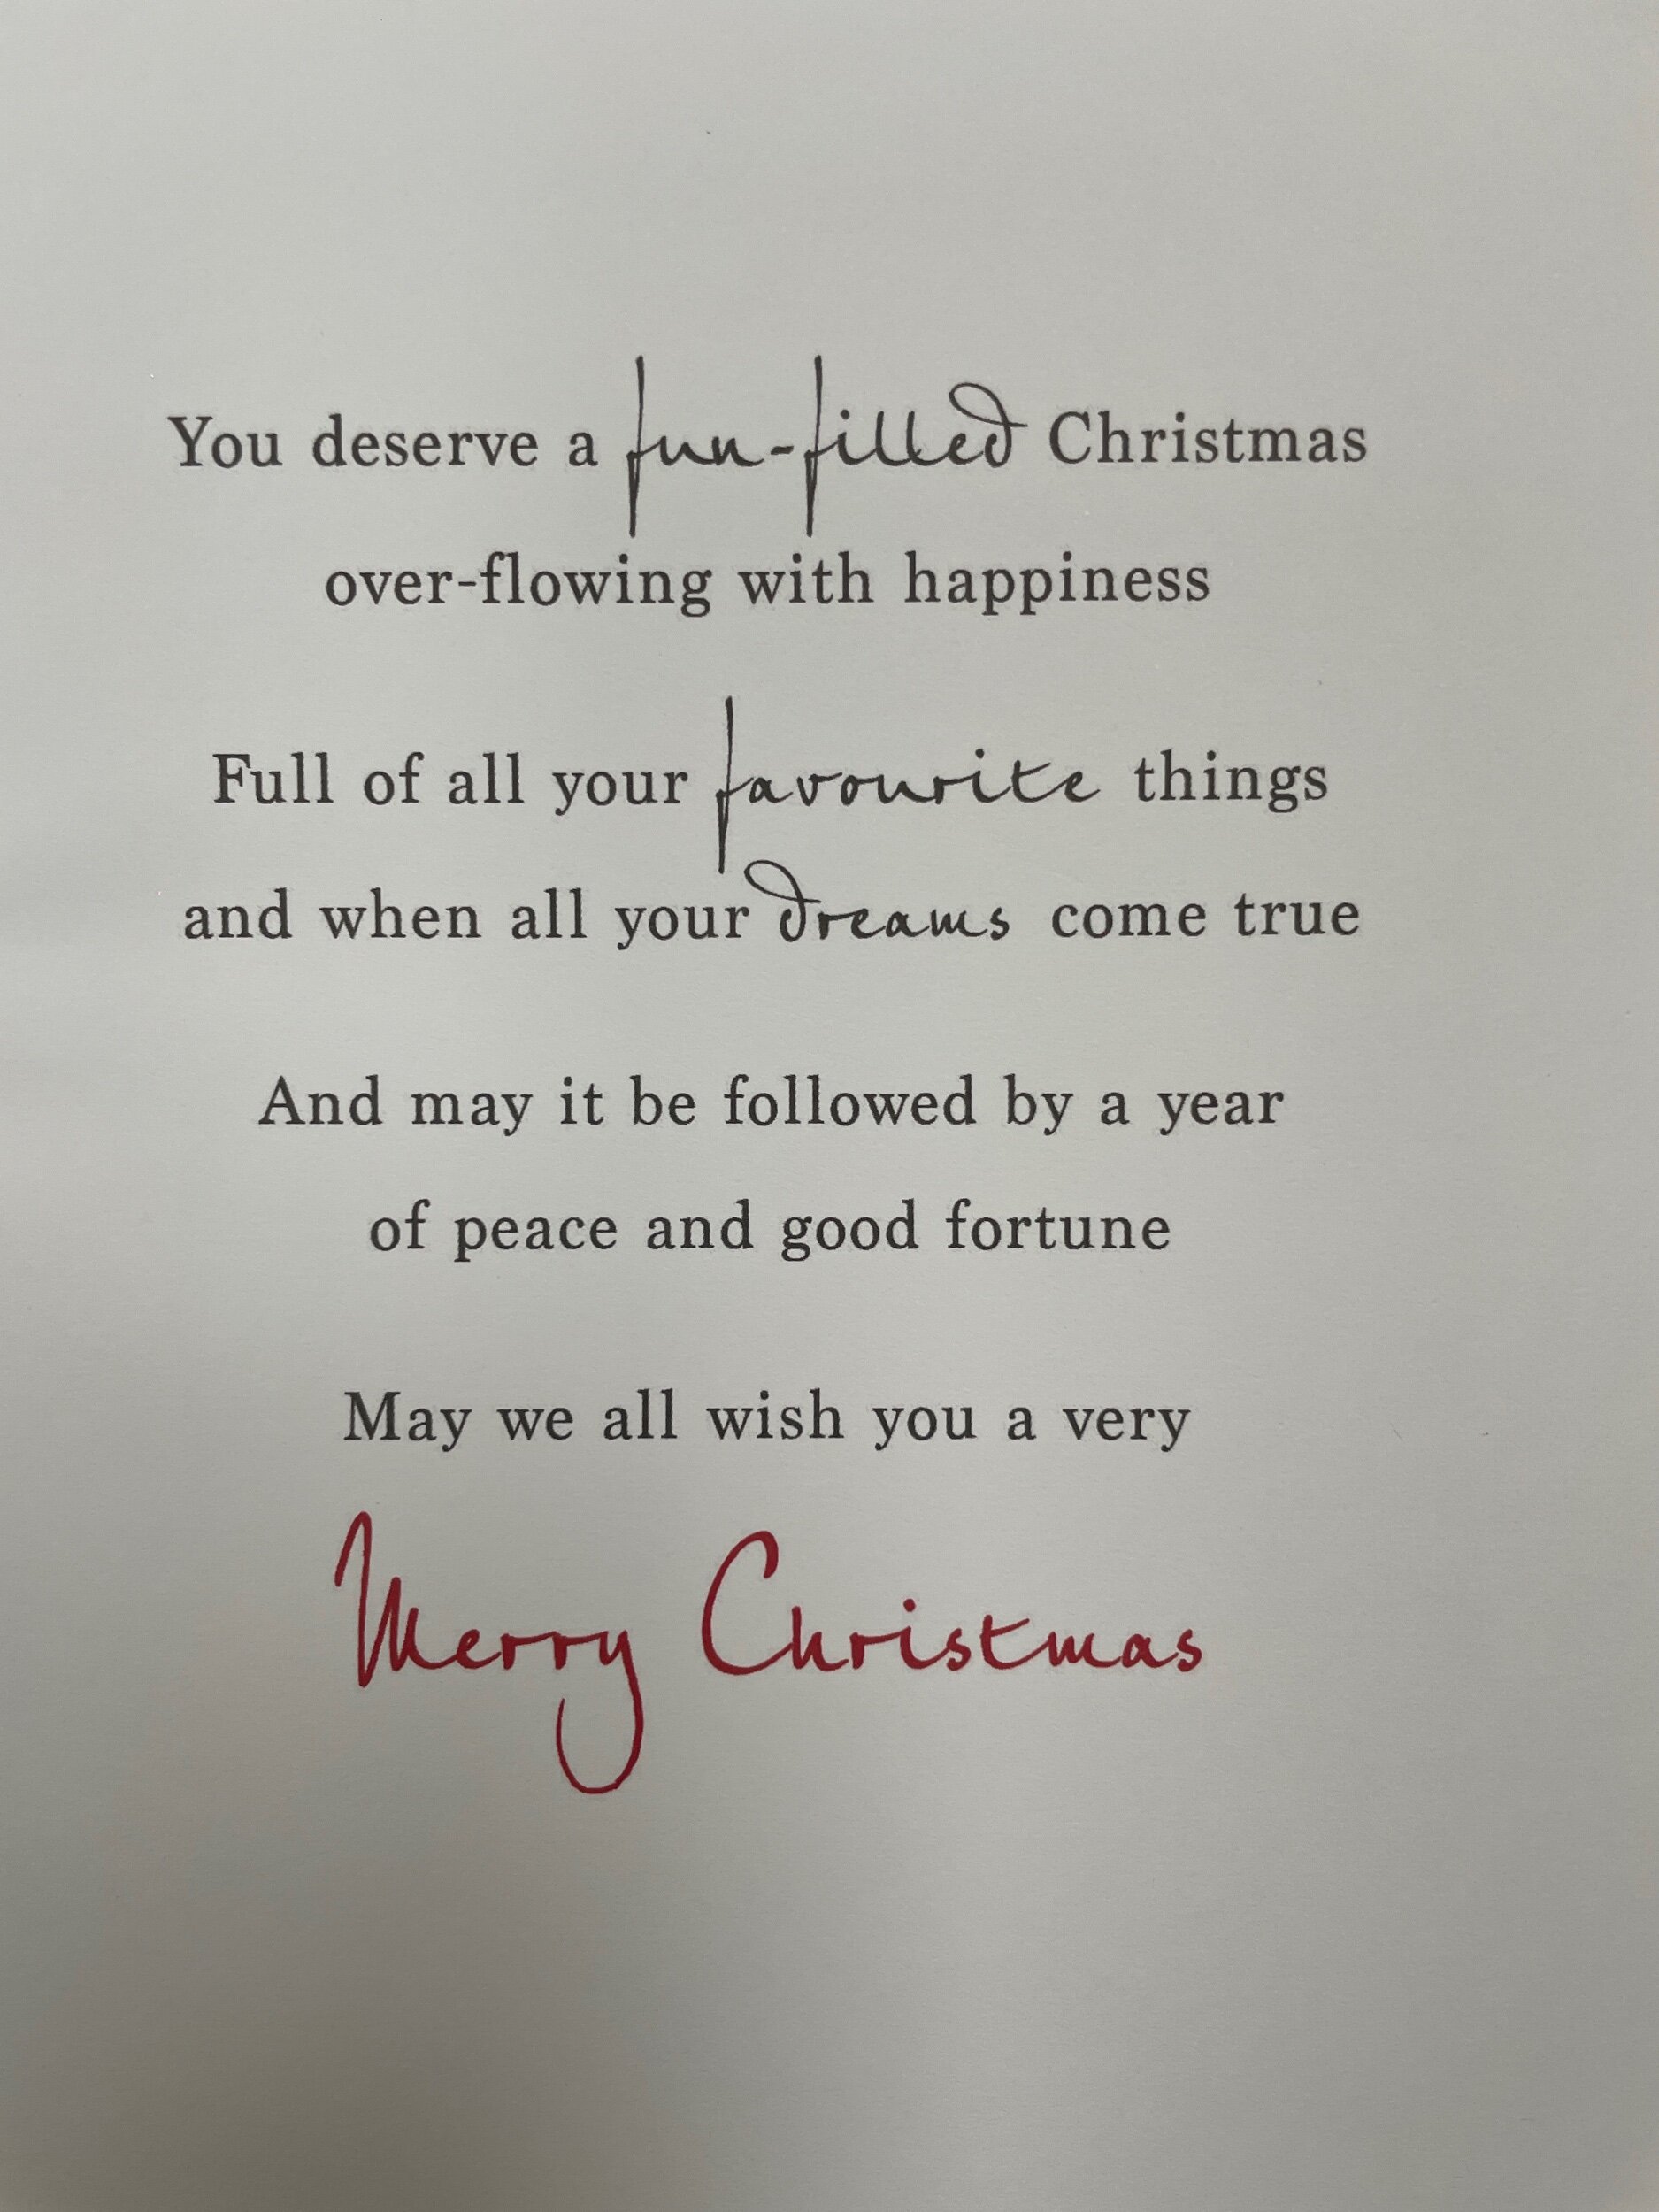 You deserve a fun-filled Christmas
over-flowing with happiness
Full of all your favourite things
and when all your dreams come true
And may it be followed by a year
of peace and good fortune
May we all wish you a very
Merry Christmas